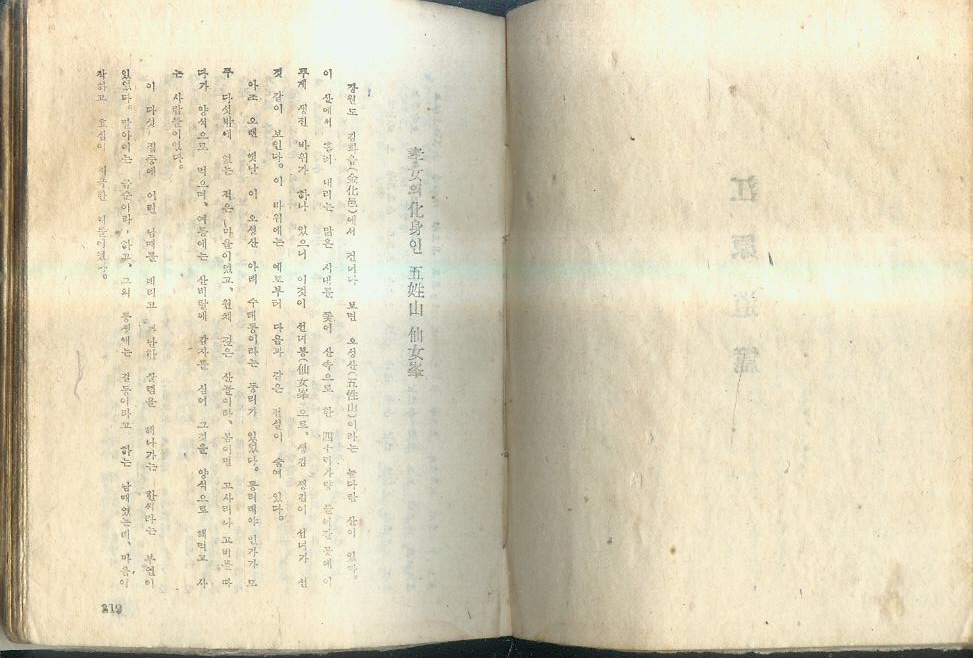 孝女의 化身인 五姓山 仙女峯
강원도 김화읍(金化邑)에서 건너다 보면 오성산(五性山)이라는 높다란 산이 있다.
이 산에서 흘러 내리는 맑은 시내를 쫓어 산속으로 한 四十리가량 들어갈 곳에 이
루게 생긴 바위가 하나 있으니 이것이 선녀봉(仙女峯)으로, 생김 생김이 선녀가 선
것 같이 보인다. 이 바위에는 예로부터 다음과 같은 전설이 숨여 있다.
아조 오랜 옛날 이 오성산 아래 수태동이라는 동리가 있었다. 동리래야 인가가 모
두 다섯밖에 없는 적은 마을이였고, 원체 깊은 산골이라, 봄이면 고사리나 고비를 따
다가 양식으로 먹으며, 여름에는 산비탈에 감자를 심어 그것을 양식으로 해먹고 사
는 사람들이였다.
이 다섯 집중에 어린 남매를 데리고 살림을 해나가는 한씨라는 부인이
있었다. 딸아이는 금순이라, 하고, 그의 동생에는 길동이라고 하는 남매였는데, 마음이
착하고 효심이 지극한 이들이였다.
219